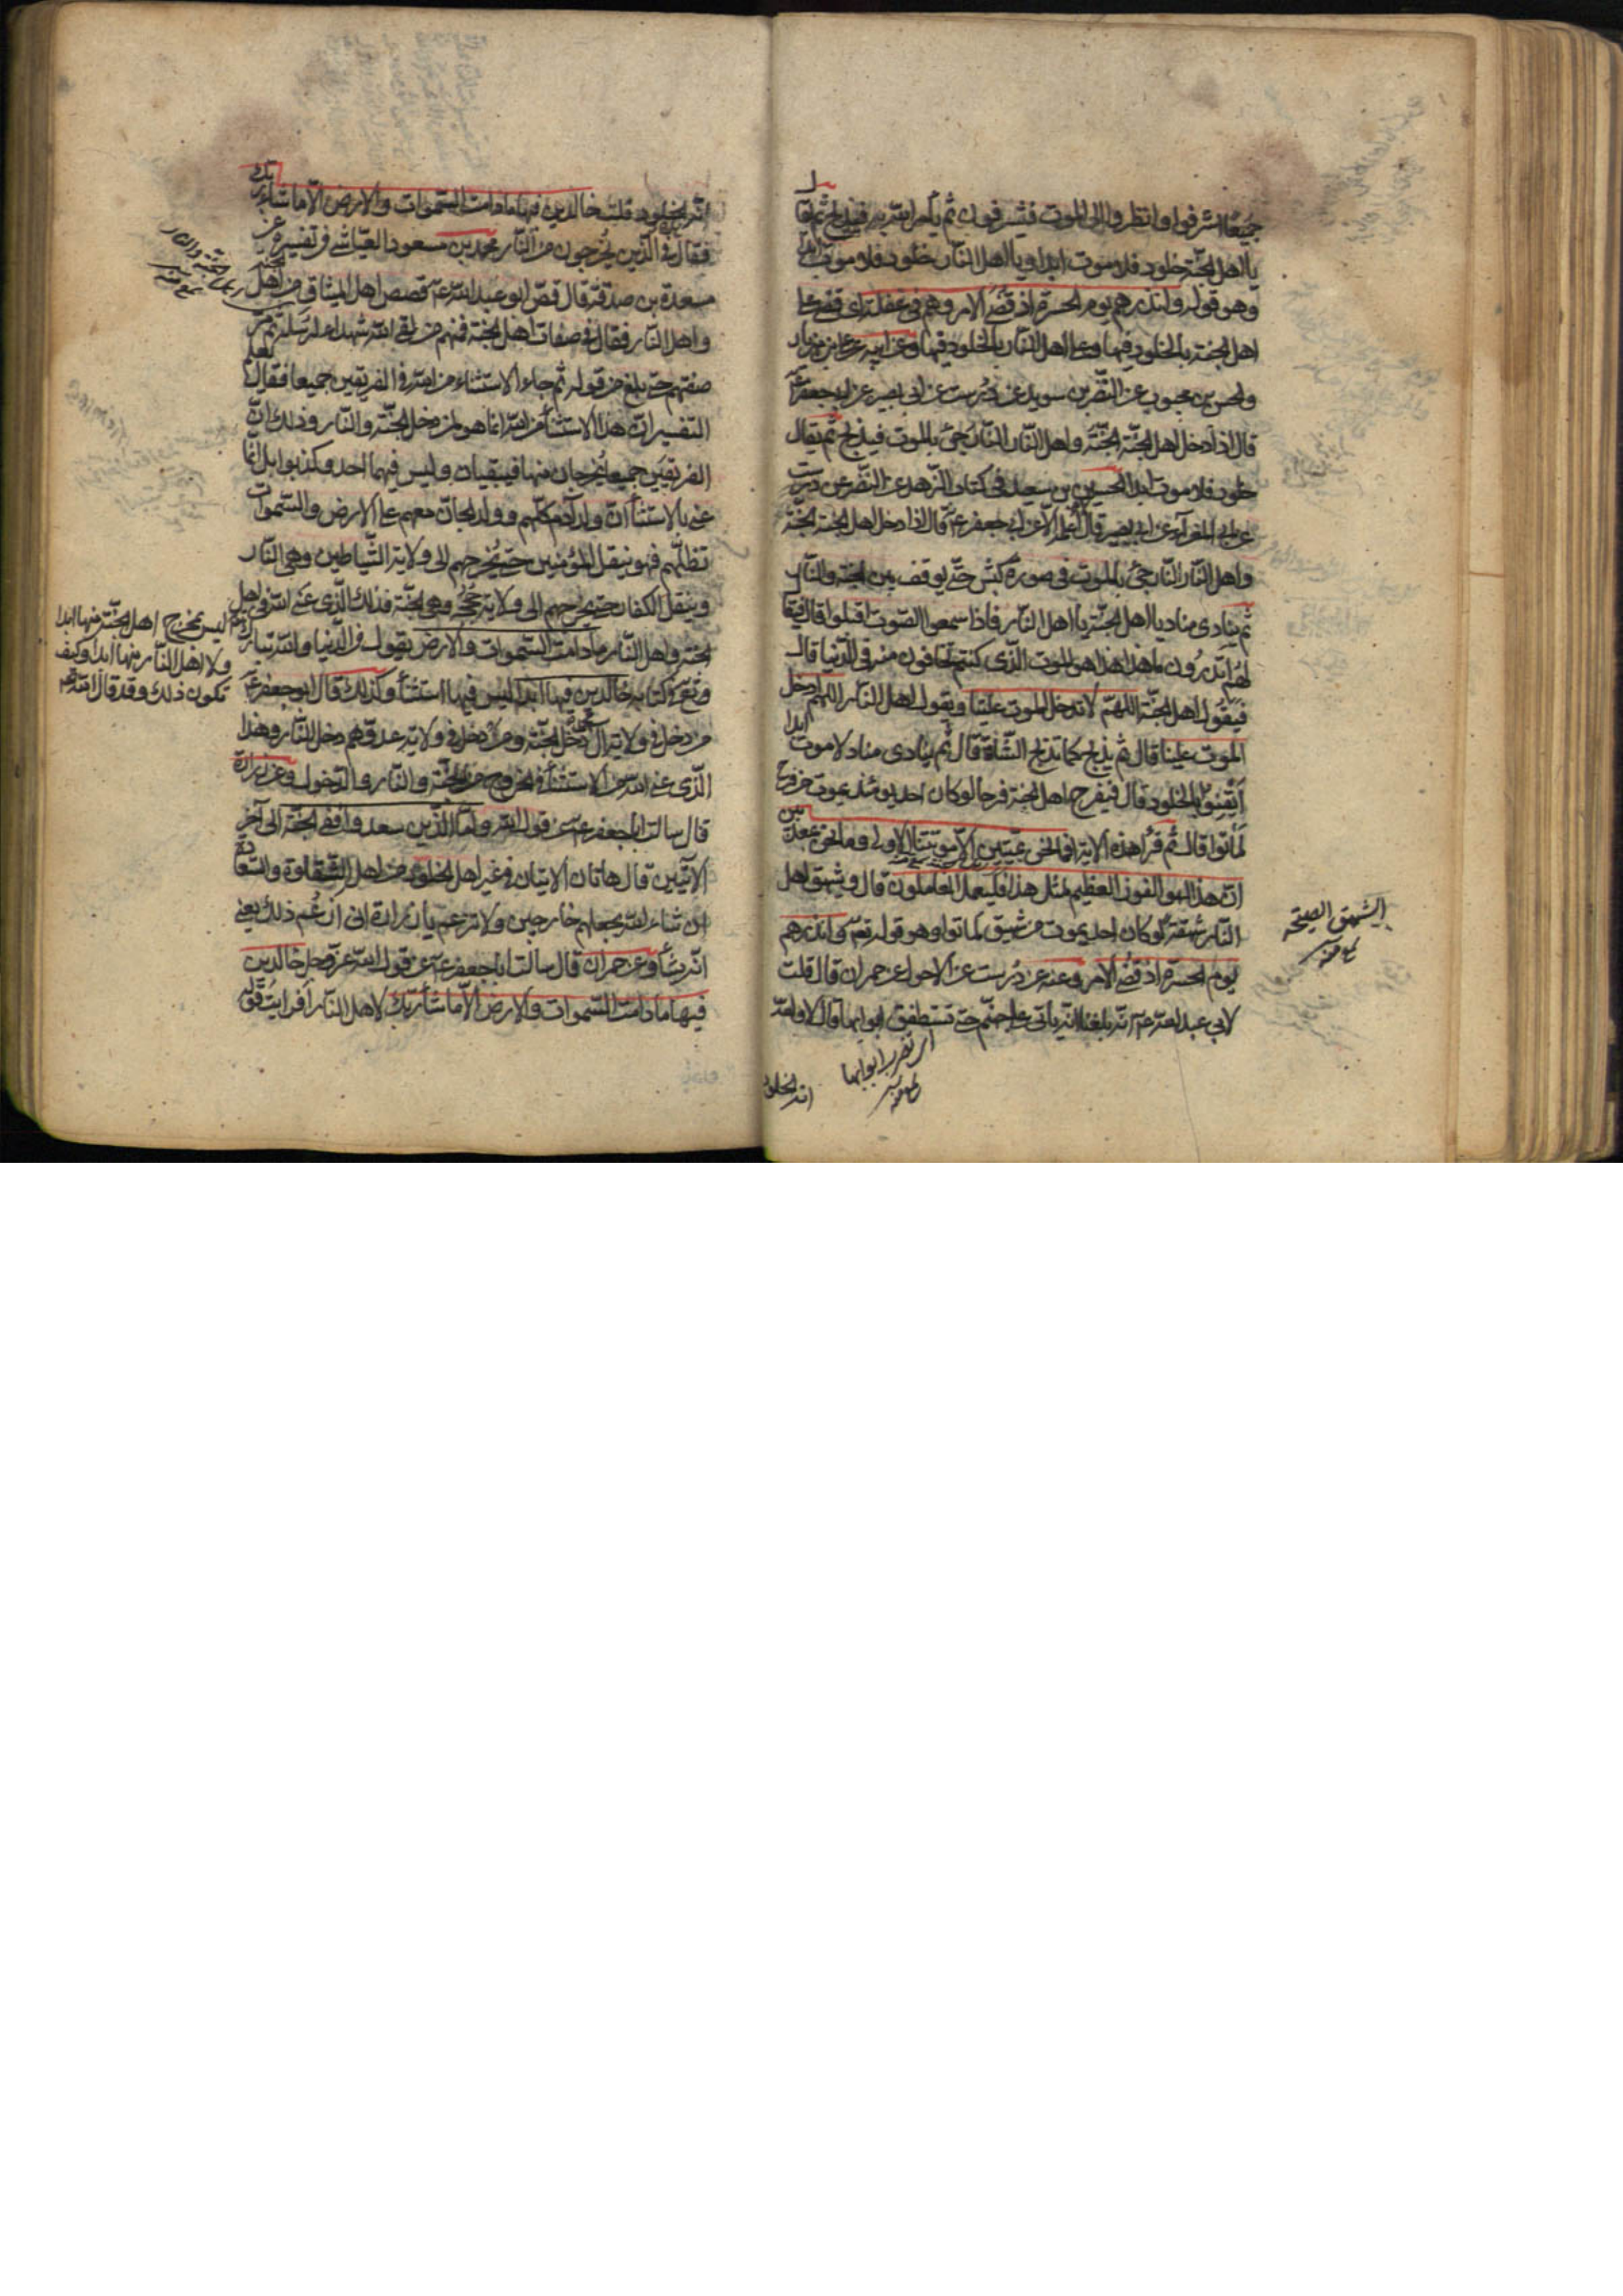 جميعا اشرفوا وانظروا الى الموت فيشرفون ثم يأمر الله به فيذبح ثم يقال
يا اهل الجنة خلود فلا موت ابدا ويا اهل النار خلود فلا موت ابدا
وهو قوله وانذرهم يوم الحسرة اذ قضى الامر وهم في غفلة اى قضى على
اهل الجنة بالخلود فيها وعلى اهل النار بالخلود فيها وعن ابيه عن على بن مهزيار
والحسن بن محبوب عن النضر بن سويد عن درست عن ابى بصير عن ابى جعفر ع
قال اذا دخل اهل الجنة الجنة واهل النار النار جئ بالموت فيذبح ثم يقال
خلود فلا موت ابدا الحسين بن سعيد فى كتاب الزهد عن النضر عن درست
عن ابى المغرا عن ابى بصير قال لا اعلمه الا عن ابى جعفر ع قال اذا دخل اهل الجنة الجنة
واهل النار النار جئ بالموت فى صورة كبش حتى يوقف بين الجنة والنار
ثم ينادى مناد يا اهل الجنة يا اهل النار فاذا سمعوا الصوت اقبلوا قال فيقال
لهم اتدرون ما هذا هذا هو الموت الذى كنتم تخافون منه فى الدنيا قال
فيقول اهل الجنة اللهم لا تدخل الموت علينا ويقول اهل النار اللهم ادخل
الموت علينا قال ثم يذبح كما تذبح الشاة قال ثم ينادى مناد لا موت ابدا
ايقنوا بالخلود قال فيفرح اهل الجنة فرحا لو كان احد يومئذ يموت من فرح
لماتوا قال ثم قرأ هذه الاية افما نحن بميتين الا موتتنا الاولى وما نحن بمعذبين
ان هذا لهو الفوز العظيم لمثل هذا فليعمل العاملون قال ويشهق اهل
النار شهقة لو كان احد يموت من شهيق لماتوا وهو قوله تع وانذرهم
يوم الحسرة اذ قضى الامر وعنه عن درست عن الاحول عن حمران قال قلت
لابي عبد الله ع انه بلغنا انه يأتى على جهنم حتى تصطفق ابوابها قال لا والله
الشهق الصيحة
ابوابها
انه الخلود
انه الخلود قلت خالدين فيها ما دامت السموات والارض الا ما شاء ربك
فقال هذه فى الذين يخرجون من النار محمد بن مسعود العياشى فى تفسيره عن
مسعدة بن صدقة قال قص ابو عبد الله ع قصص اهل الميثاق من اهل الجنة
واهل النار فقال فى صفات اهل الجنة فمنهم من لقى الله شهداء لرسله ثم مر فى
صفتهم حتى بلغ من قوله ثم جاء الاستثناء من الله فى الفريقين جميعا فقال
التفسير ان هذا الاستثناء من الله انما هو لمن دخل الجنة والنار وذلك ان
الفريقين جميعا يخرجان منها فيبقيان وليس فيهما احد وكذبوا بل انما
عنى بالاستثناء ان ولد آدم كلهم وولد الجان معهم على الارض والسموات
تظلهم فهو ينقل المؤمنين حتى يخرجهم الى ولاية الشياطين وهى النار
وينقل الكفار حتى يخرجهم الى ولاية وهى الجنة فذلك الذى عنى الله فى اهل
الجنة واهل النار ما دامت السموات والارض يقول فى الدنيا والله تبارك
وتع كتابه خالدين فيها ابدا ليس فيها استثناء وكذلك قال ابو جعفر ع
من دخل فى ولاية آل محمد دخل الجنة ومن دخل فى ولاية عدوهم دخل النار وهذا
الذى عنى الله من الاستثناء فى الخروج من الجنة والنار والدخول وعن زرارة
قال سالت ابا جعفر ع عن قول الله واما الذين سعدوا ففى الجنة الى آخر
الايتين قال هاتان الايتان فى غير اهل الخلود من اهل الشقاوة والسعادة
ان شاء الله يجعلهم خارجين ولا تزعم يا زرارة انى ازعم ذلك يعنى
انه يشاء وعن حمران قال سالت ابا جعفر ع عن قول الله عز وجل خالدين
فيها ما دامت السموات والارض الا ما شاء ربك لاهل النار افرايت قوله
ليس بمخرج اهل الجنة منها ابدا
ولا اهل النار منها ابدا وكيف
تكون ذلك وقد قال الله تع